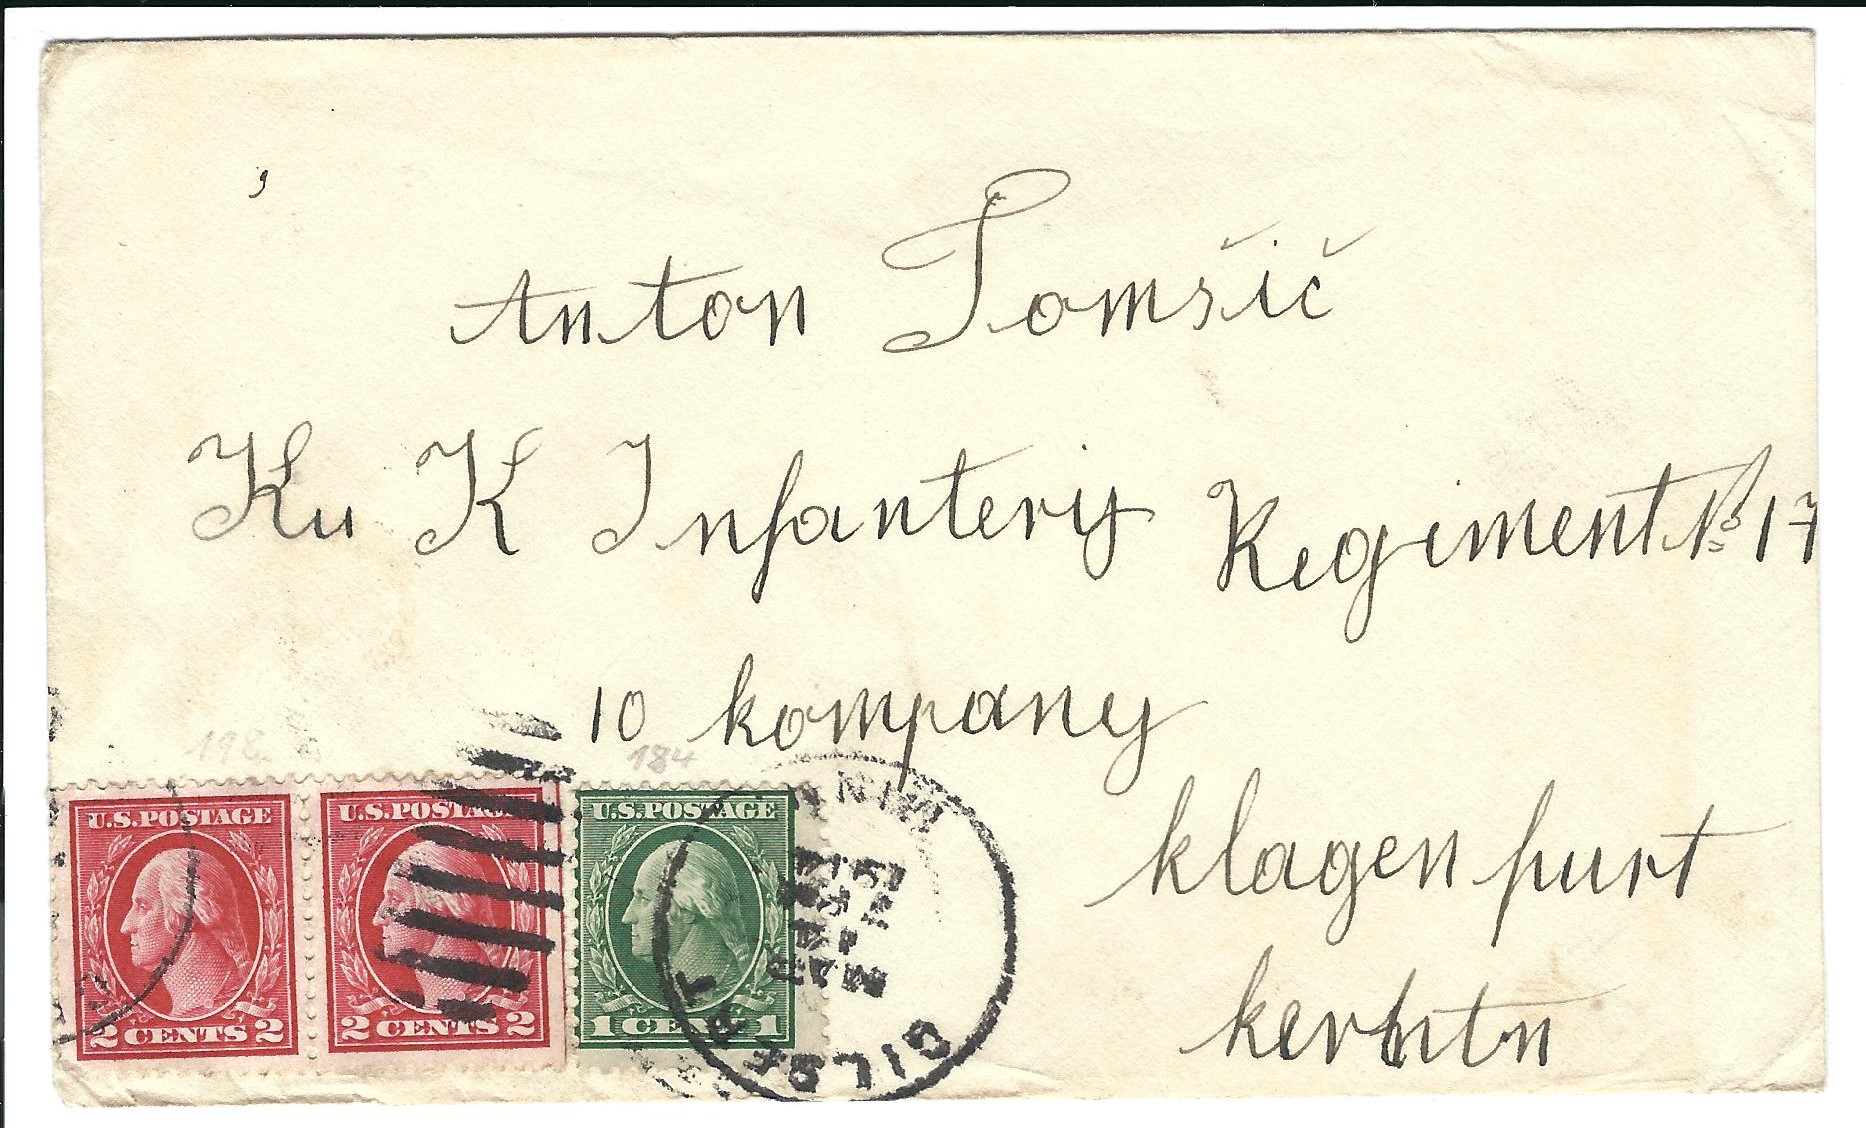 Anton Tomšič
Ku K Infantery Regiment No 17
10 kompany
klagenfurt
kerntn
198
184
U.S. POSTAGE
2 CENTS 2
U.S. POSTAGE
2 CENTS 2
U.S. POSTAGE
1 CENT 1
GILBERT
MINN
MAR